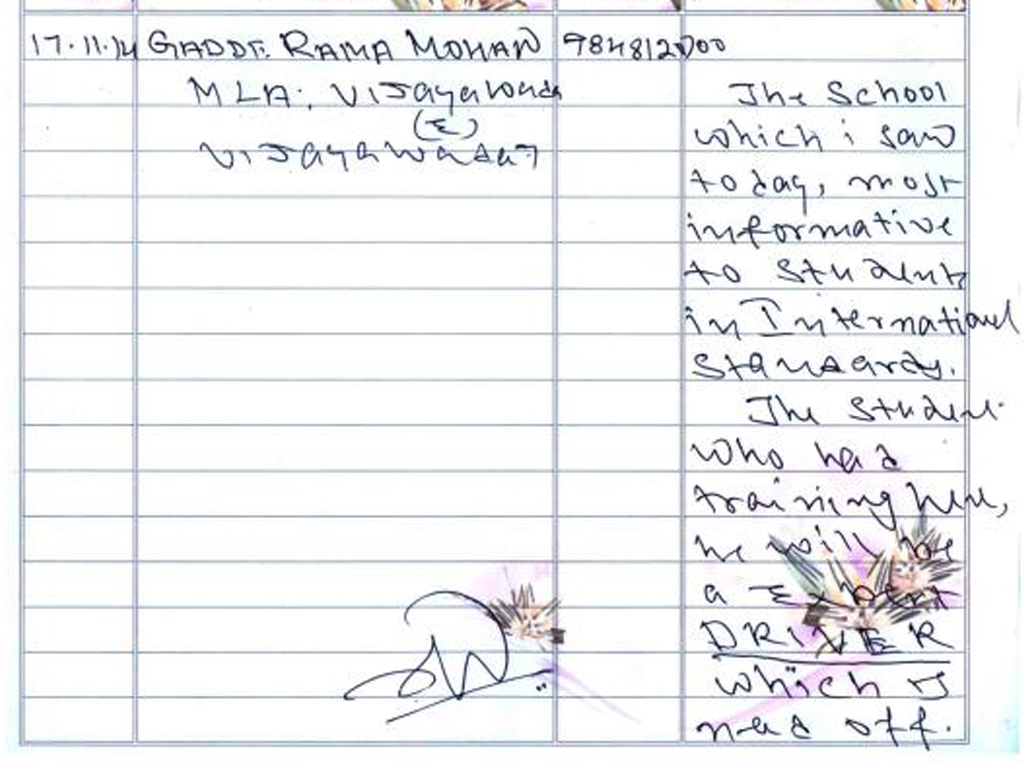 17.11.14 GADDE. RAMA MOHAN 984812000
MLA. VIJayawada
(E)
VIJayawada-7
The School
which i saw
today, most
informative
to students
in International
standards.
The student
who had
training here,
he will be
a Expert
DRIVER
which is
need off.